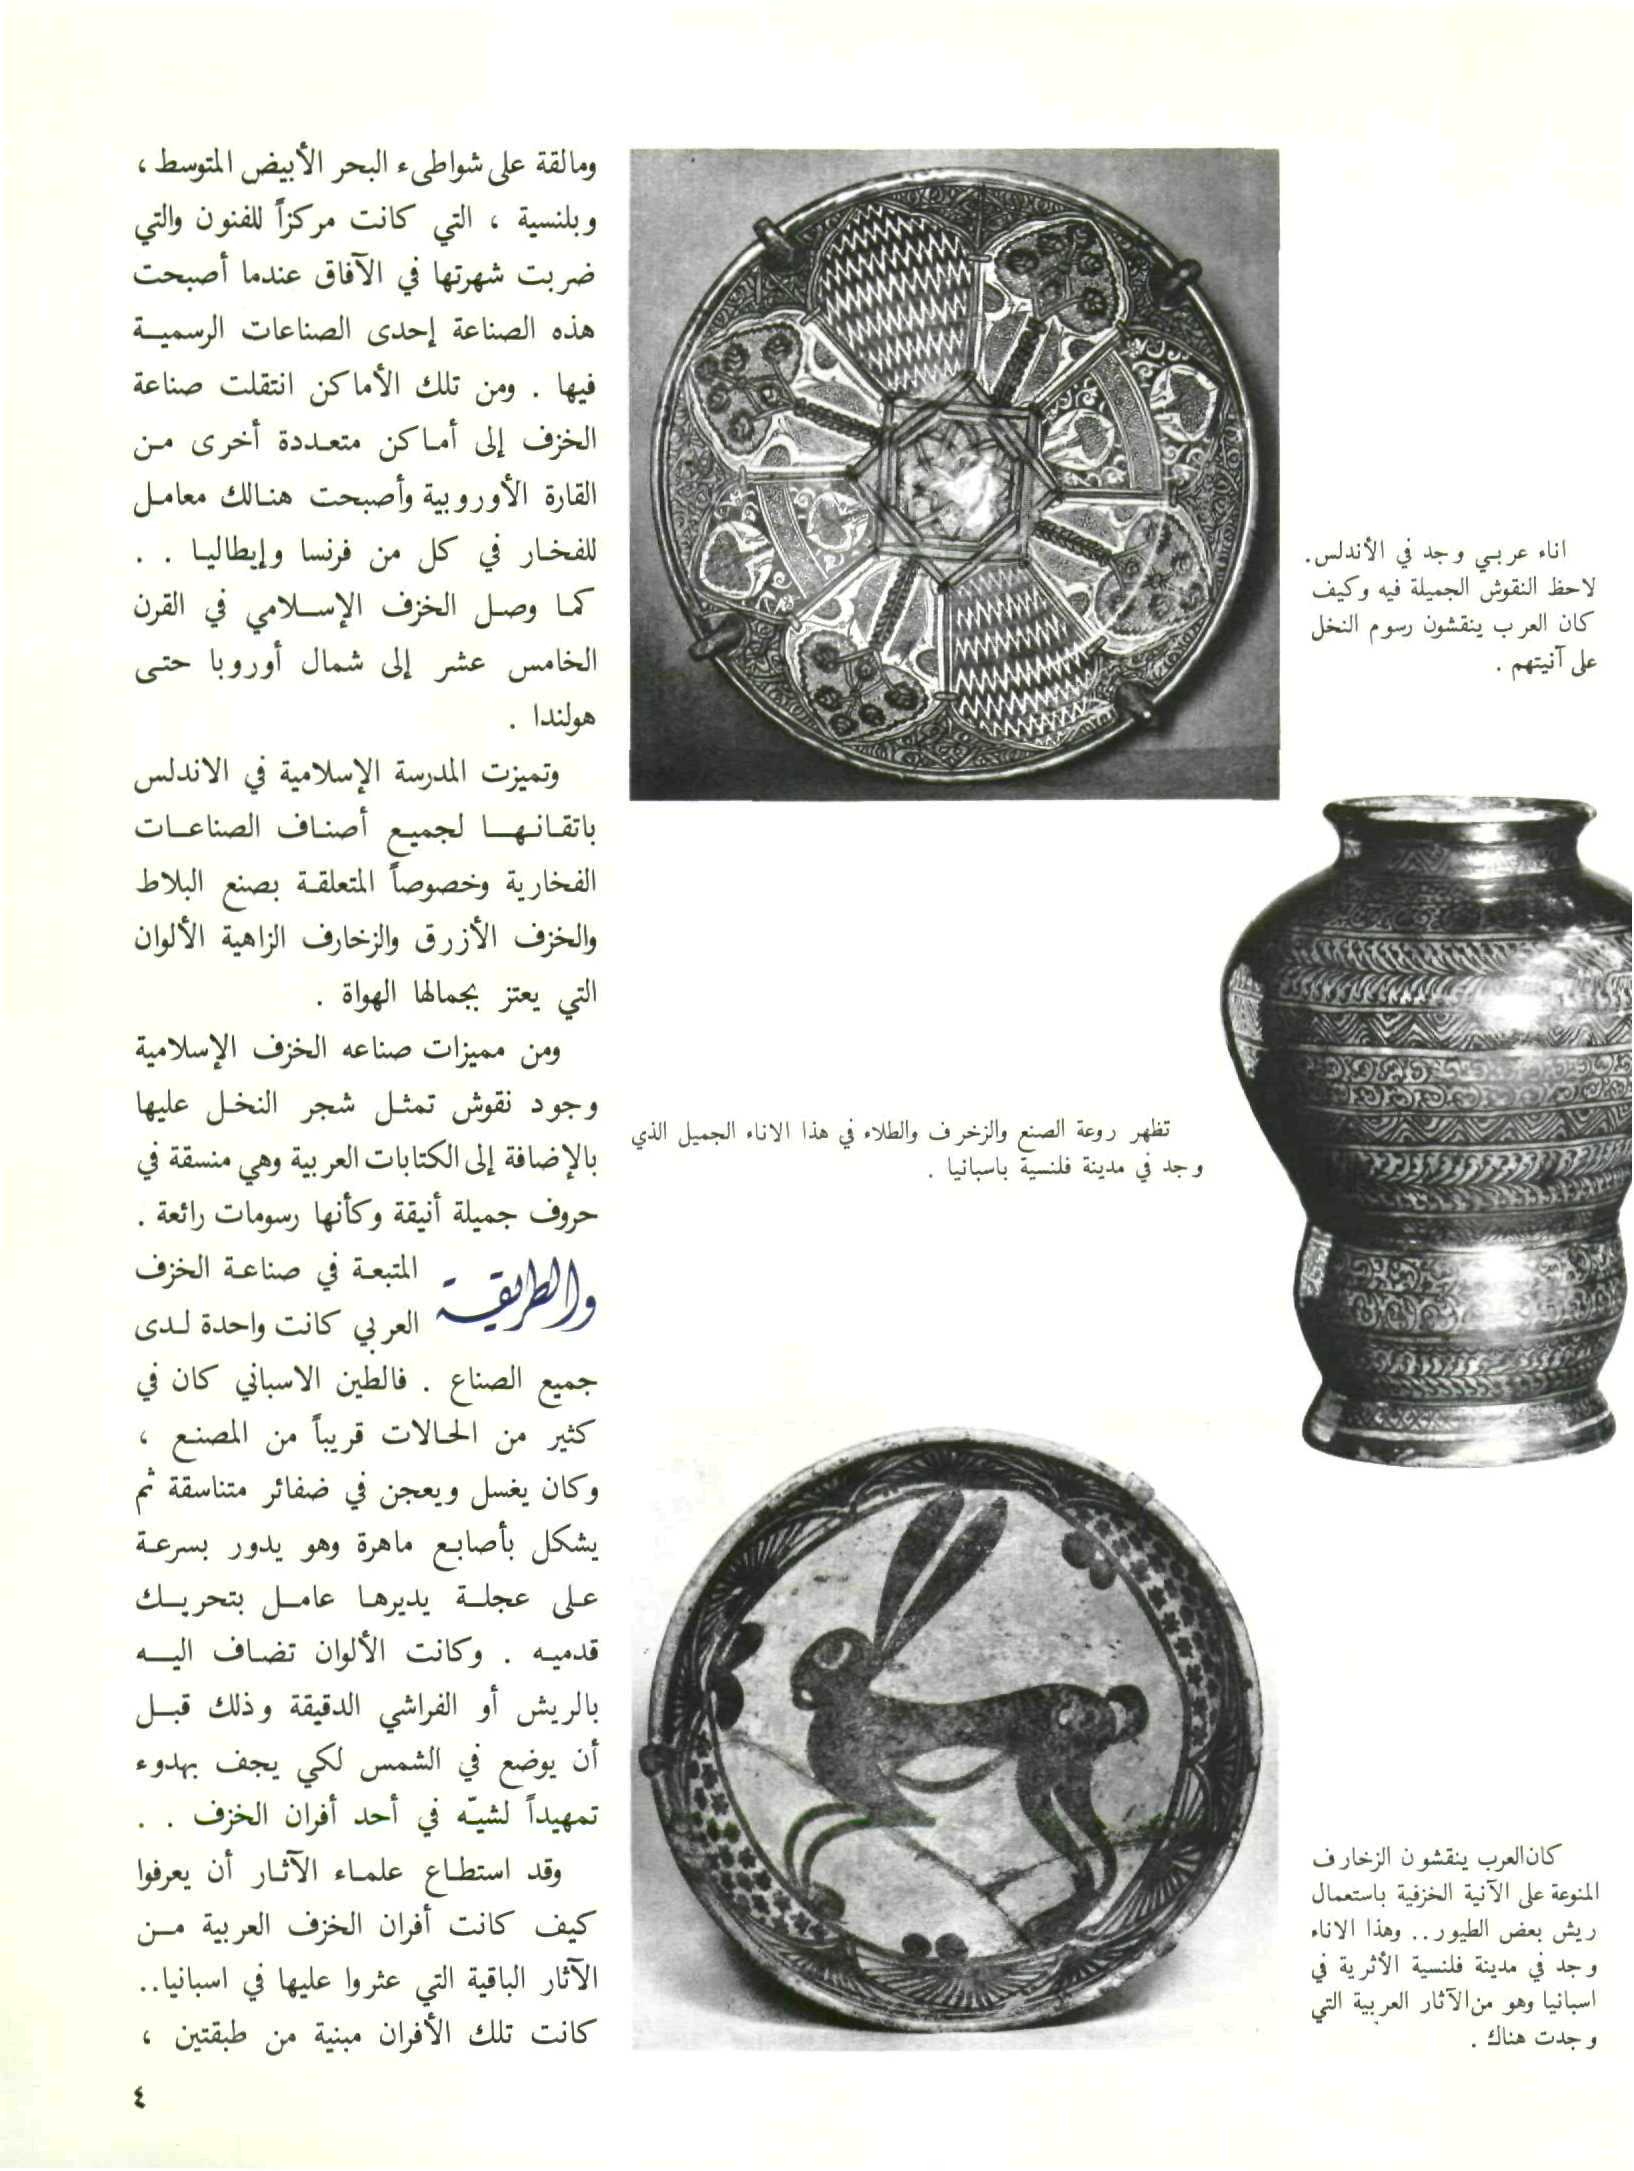 اناء عربي وجد في الأندلس.
لاحظ النقوش الجميلة فيه وكيف
كان العرب ينقشون رسوم النخل
على آنيتهم .
تظهر روعة الصنع والزخرف والطلاء في هذا الاناء الجميل الذي
وجد في مدينة فلنسية باسبانيا .
كان العرب ينقشون الزخارف
المنوعة على الآنية الخزفية باستعمال
ريش بعض الطيور.. وهذا الاناء
وجد في مدينة فلنسية الأثرية في
اسبانيا وهو من الآثار العربية التي
وجدت هناك .
ومالقة على شواطىء البحر الأبيض المتوسط ،
وبلنسية ، التي كانت مركزاً للفنون والتي
ضربت شهرتها في الآفاق عندما أصبحت
هذه الصناعة إحدى الصناعات الرسمية
فيها . ومن تلك الأماكن انتقلت صناعة
الخزف إلى أماكن متعددة أخرى من
القارة الأوروبية وأصبحت هنالك معامل
للفخار في كل من فرنسا وإيطاليا . .
كما وصل الخزف الإسلامي في القرن
الخامس عشر إلى شمال أوروبا حتى
هولندا .
وتميزت المدرسة الإسلامية في الاندلس
باتقانها لجميع أصناف الصناعات
الفخارية وخصوصاً المتعلقة بصنع البلاط
والخزف الأزرق والزخارف الزاهية الألوان
التي يعتز بجمالها الهواة .
ومن مميزات صناعه الخزف الإسلامية
وجود نقوش تمثل شجر النخل عليها
بالإضافة إلى الكتابات العربية وهي منسقة في
حروف جميلة أنيقة وكأنها رسومات رائعة .
والطريقة المتبعة في صناعة الخزف
العربي كانت واحدة لدى
جميع الصناع . فالطين الاسباني كان في
كثير من الحالات قريباً من المصنع ،
وكان يغسل ويعجن في ضفائر متناسقة ثم
يشكل بأصابع ماهرة وهو يدور بسرعة
على عجلة يديرها عامل بتحريك
قدميه . وكانت الألوان تضاف اليه
بالريش أو الفراشي الدقيقة وذلك قبل
أن يوضع في الشمس لكي يجف بهدوء
تمهيداً لشيّه في أحد أفران الخزف . .
وقد استطاع علماء الآثار أن يعرفوا
كيف كانت أفران الخزف العربية من
الآثار الباقية التي عثروا عليها في اسبانيا..
كانت تلك الأفران مبنية من طبقتين ،
٤